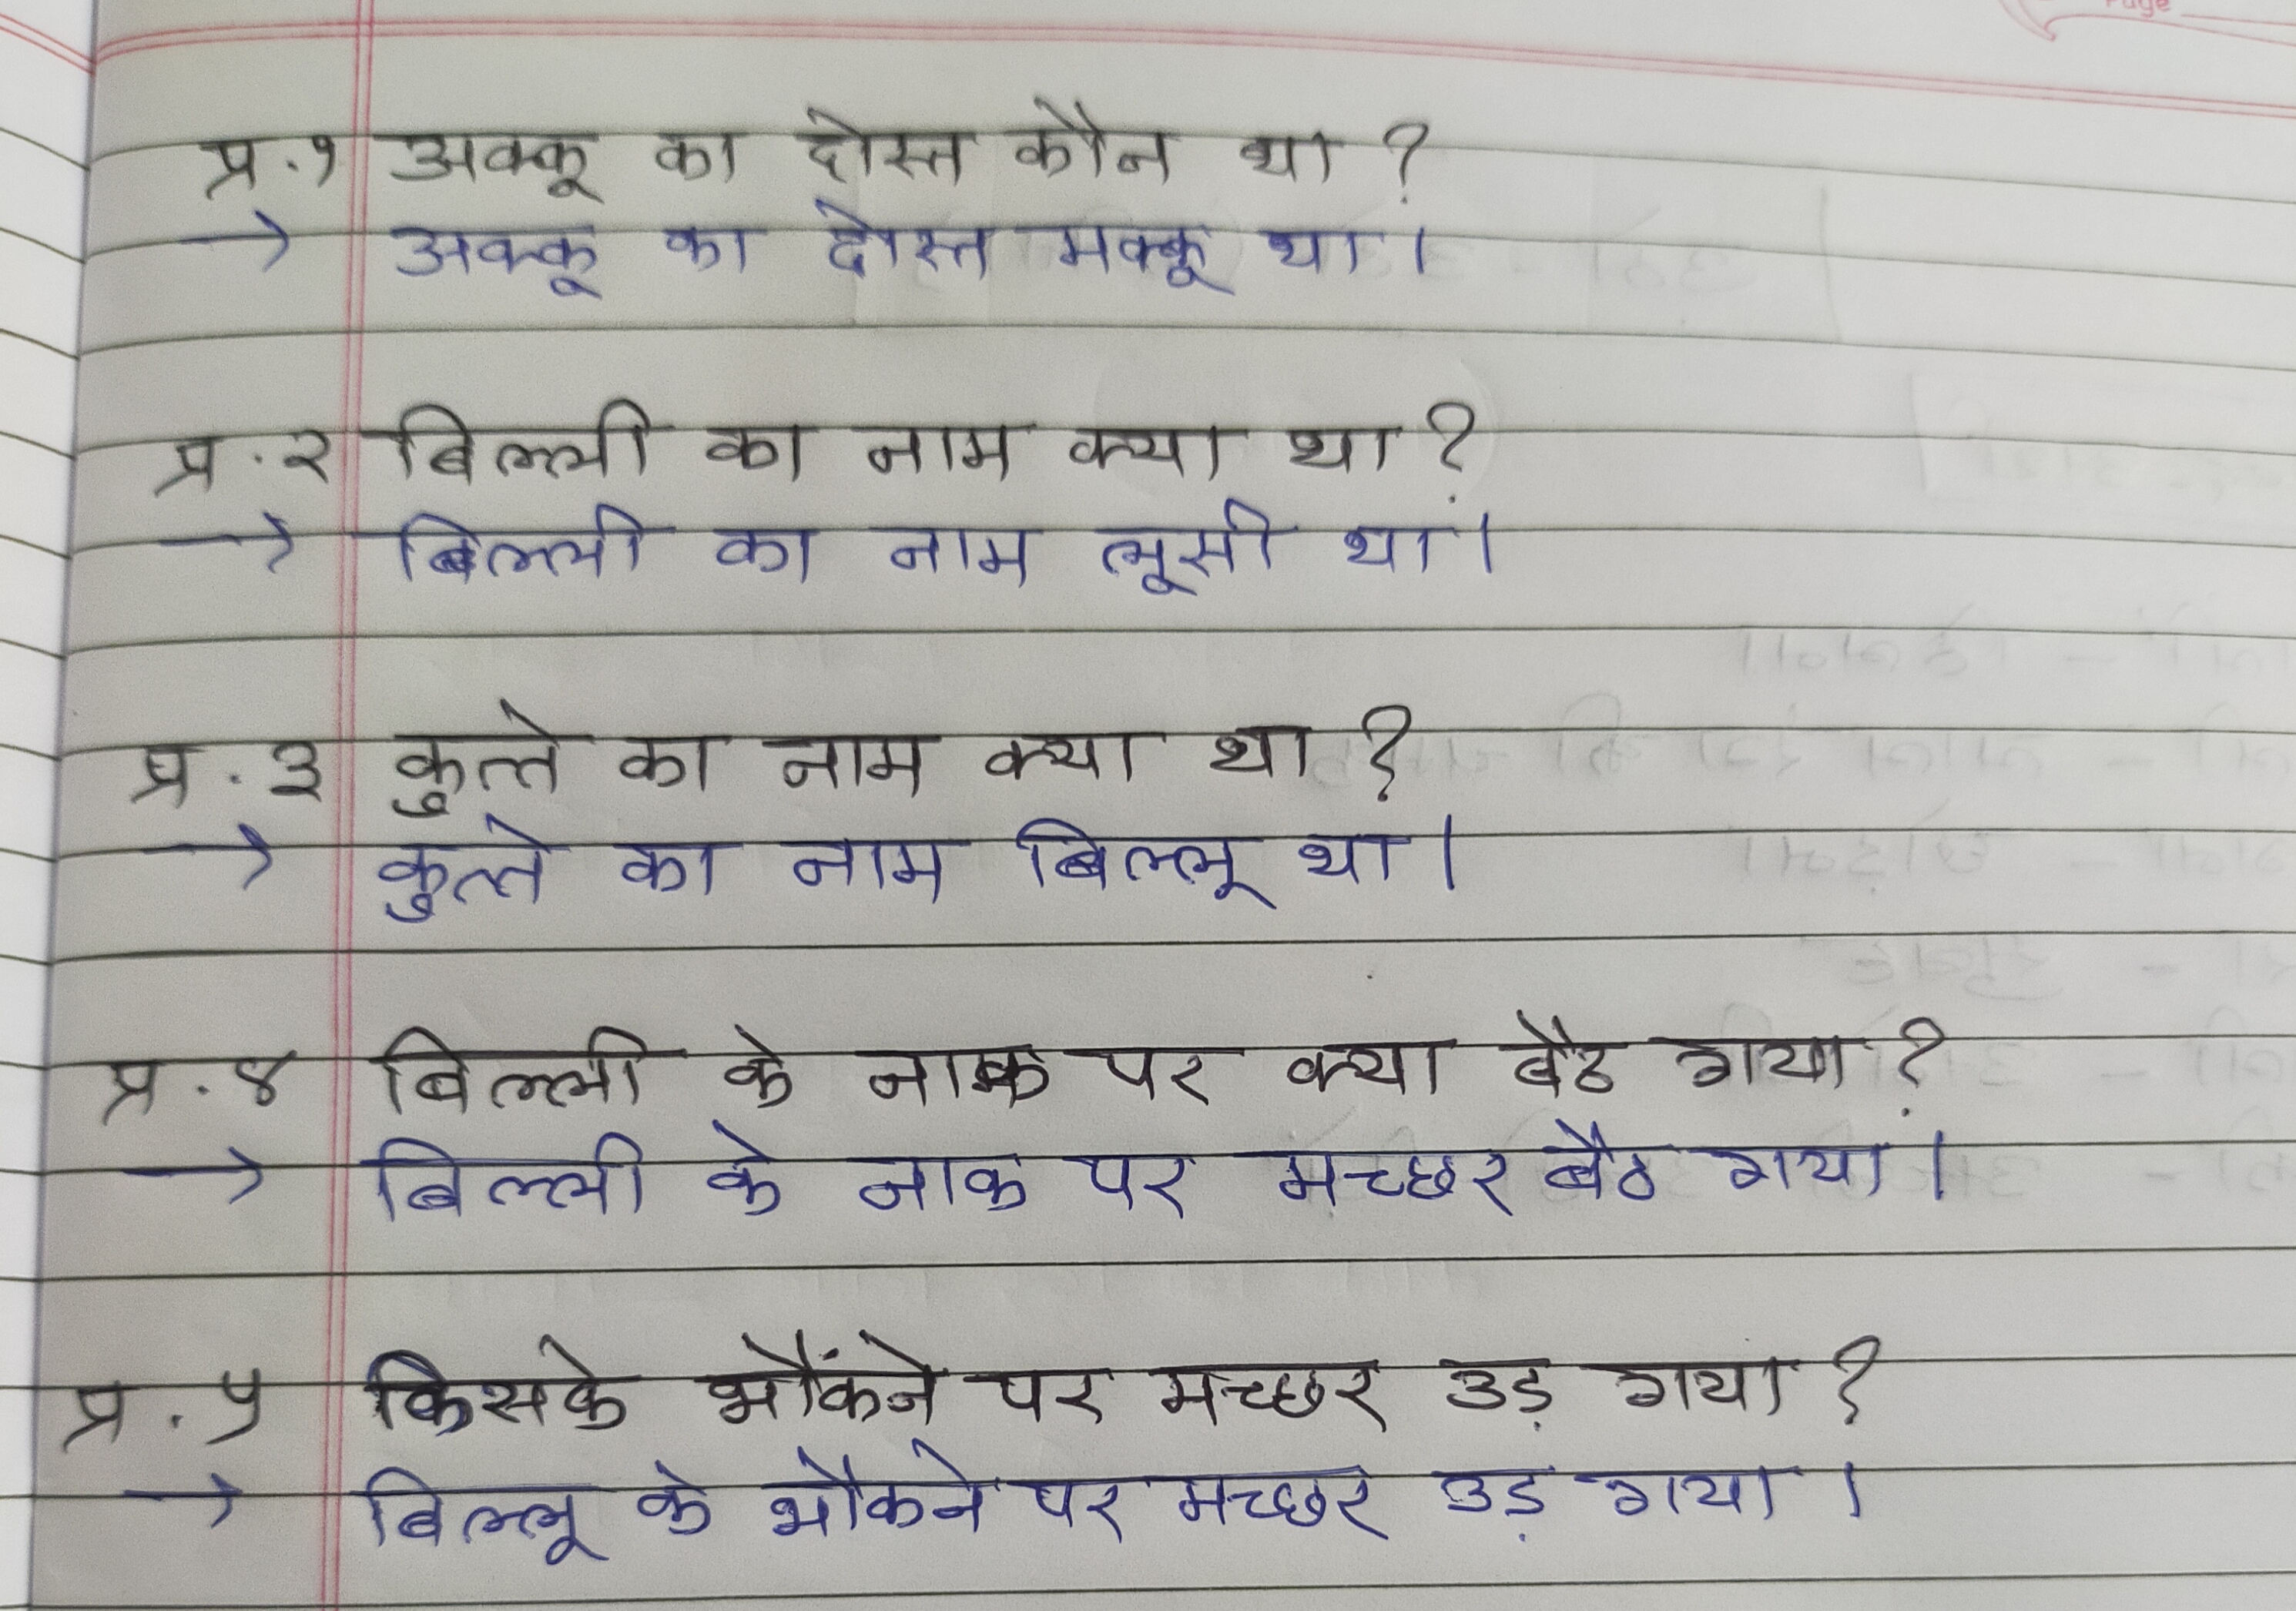 Page
प्र.१ अक्कू का दोस्त कौन था ?
→ अक्कू का दोस्त मक्कू था ।
प्र.२ बिल्ली का नाम क्या था ?
→ बिल्ली का नाम लूसी था ।
प्र.३ कुत्ते का नाम क्या था ?
→ कुत्ते का नाम बिल्लू था ।
प्र.४ बिल्ली के नाक पर क्या बैठ गया ?
→ बिल्ली के नाक पर मच्छर बैठ गया ।
प्र.५ किसके भौंकने पर मच्छर उड़ गया ?
→ बिल्लू के भौकने पर मच्छर उड़ गया ।